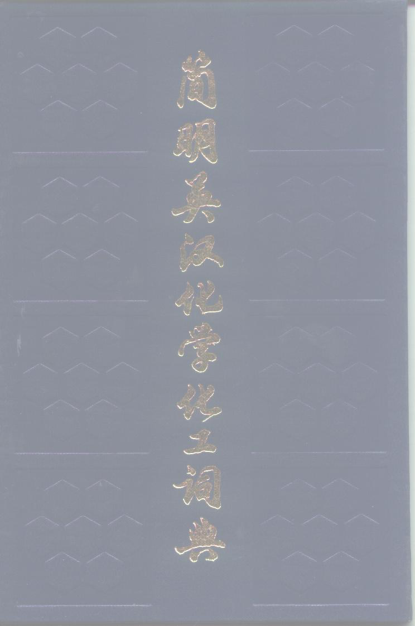 简明英汉化学化工词典